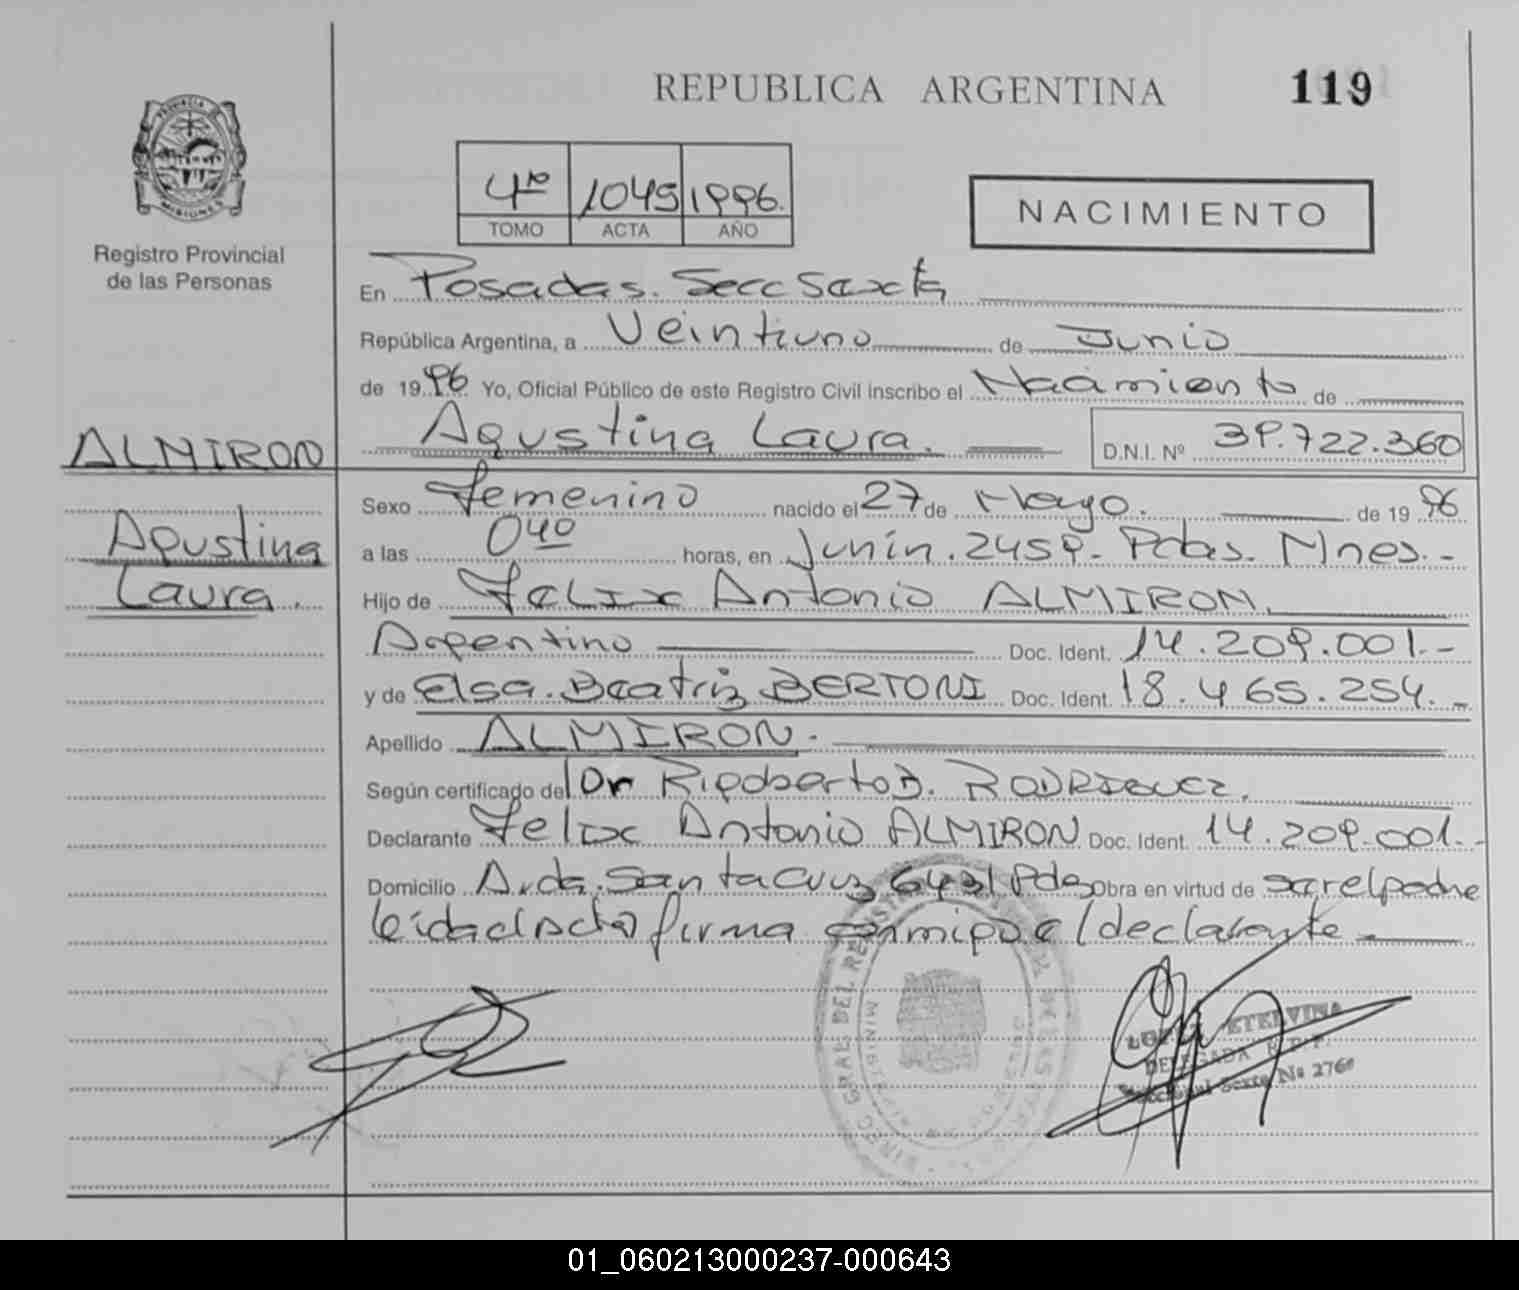 REPUBLICA ARGENTINA 119
4to 1045 1996.
TOMO ACTA AÑO
NACIMIENTO
PROVINCIA DE MISIONES
Registro Provincial
de las Personas
En Posadas. Secc Sexta
República Argentina, a Veintiuno de Junio
de 1996 Yo, Oficial Público de este Registro Civil inscribo el Nacimiento de
Agustina Laura. D.N.I. Nº 39.722.360
ALMIRON
Agustina
Laura.
Sexo Femenino nacido el 27 de Mayo. de 1996
a las 040 horas, en Junín. 2459- Pdas. Mnes.-
Hijo de Felix Antonio ALMIRON.
Argentino Doc. Ident. 14.209.001.-
y de Elsa. Beatriz BERTONI Doc. Ident. 18.465.254.-
Apellido ALMIRON.
Según certificado del Dr Rigoberto D. RODRIGUEZ.
Declarante Felix Antonio ALMIRON Doc. Ident. 14.209.001.-
Domicilio Avda. Santa Cruz 6431 Pdas Obra en virtud de ser el padre
leida el Acta firma conmigo el declarante-
LOPEZ ETELVINA
DELEGADA R.P.P.
Seccional Sexta Nº 2760
01_060213000237-000643